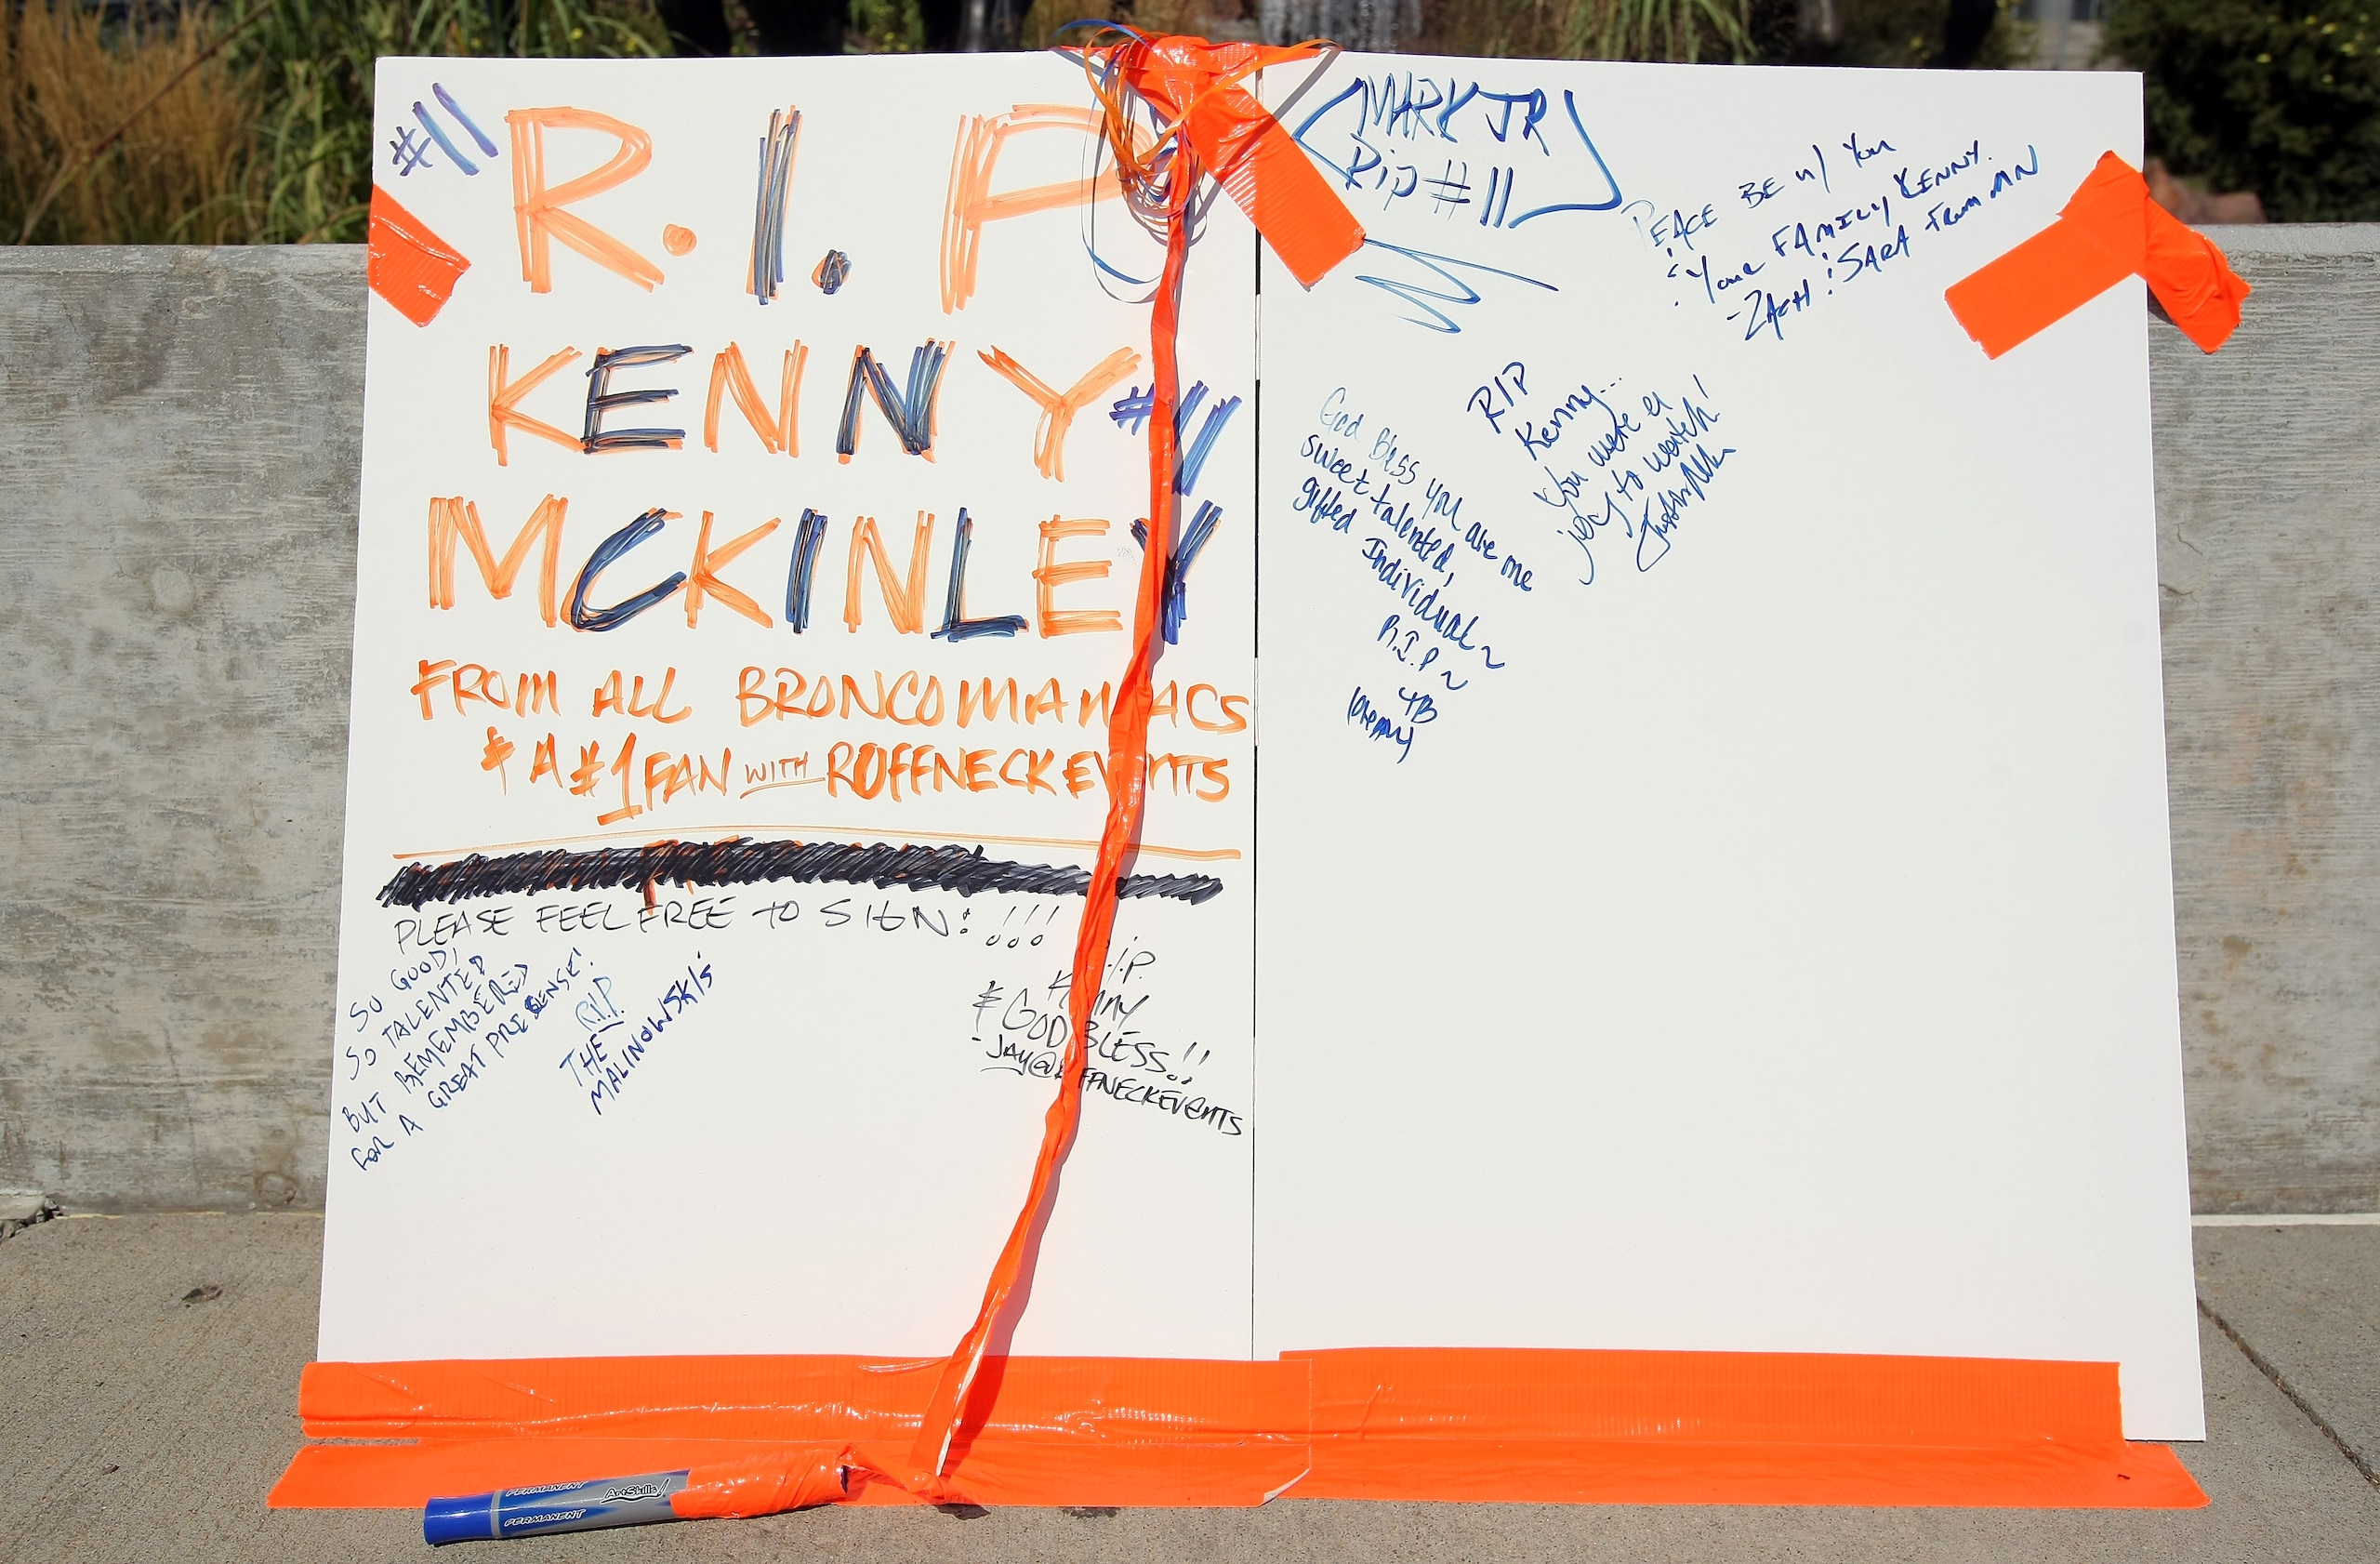 #11
R.I.P
KENNY #11
MCKINLEY
FROM ALL BRONCOMANIACS
& A #1 FAN WITH RUFFNECKEVENTS
PLEASE FEEL FREE TO SIGN: !!!
SO GOOD!
SO TALENTED
BUT REMEMBERED
FOR A GREAT PRESENSE!
R.I.P.
THE
MALINOWSKI'S
R.I.P.
KENNY
& GOD BLESS!!
-JAY@RUFFNECKEVENTS
MARK JR
Rip #11
PEACE BE w/ You
& Your FAMILY KENNY.
-ZACH & SARA FROM MN
RIP
Kenny...
You were a
joy to watch!
God Bless you are me
sweet talented,
gifted Individual ~
R.I.P ~
PERMANENT
ArtSkills!
PERMANENT